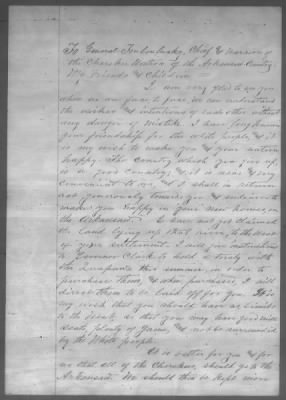 To General Tonlonluske, Chief & Warrior of
the Cherokee Nation of the Arkansas Country.
My Friends & Children
I am very glad to see you
when we are face to face, we can understand
the wishes & intentions of each other without
any danger of mistake. I have long known
your friendship for the white people, & it
is my wish to make you & your nation
happy. The country which you give up,
is a good country, & it is near & very
convenient to us, & I shall in return
act generously towards you & endeavor to
make you happy in your new homes, on
the Arkansas. I have not yet obtained
the land lying up that river, to the West
of your settlement. I will give instructions
to Governor Clark to hold a treaty with
the Quapaws this summer, in order to
purchase them, & when purchased, I will
direct them to be laid off for you. It is
my wish that you should have no limits
to the West, so that you may have good mill
seats, plenty of game, & not be surrounded
by the White people.
It is better for you & for
us that all of the Cherokees, should go to the
Arkansas. We should then be kept more